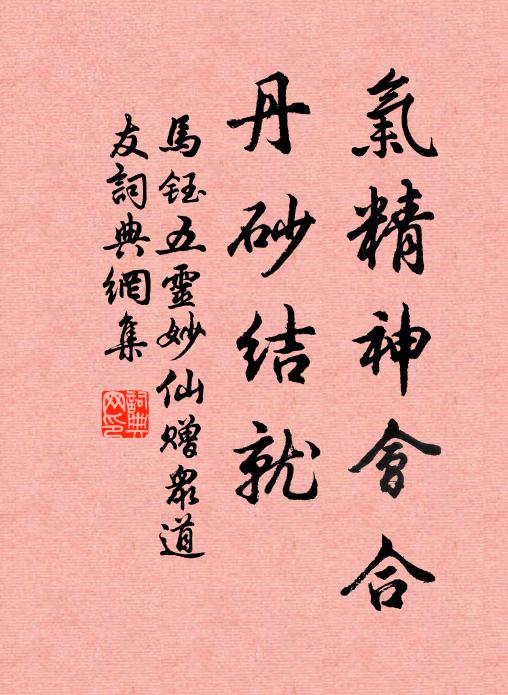 氣精神會合
丹砂結就
馬鈺五靈妙仙贈眾道
友詞典網集
詞典网印